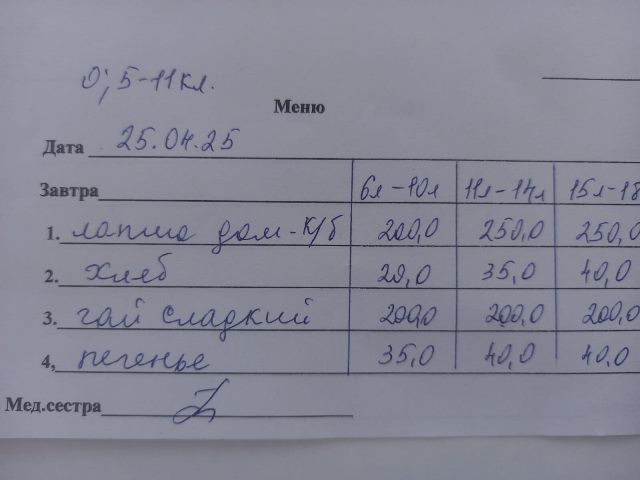 0; 5-11 кл.
Меню
Дата 25.04.25
Завтра 6л-10л 11л-14л 15л-18
1. лапша дом-к/б 200,0 250,0 250,0
2. хлеб 20,0 35,0 40,0
3. чай сладкий 200,0 200,0 200,0
4, печенье 35,0 40,0 40,0
Мед.сестра